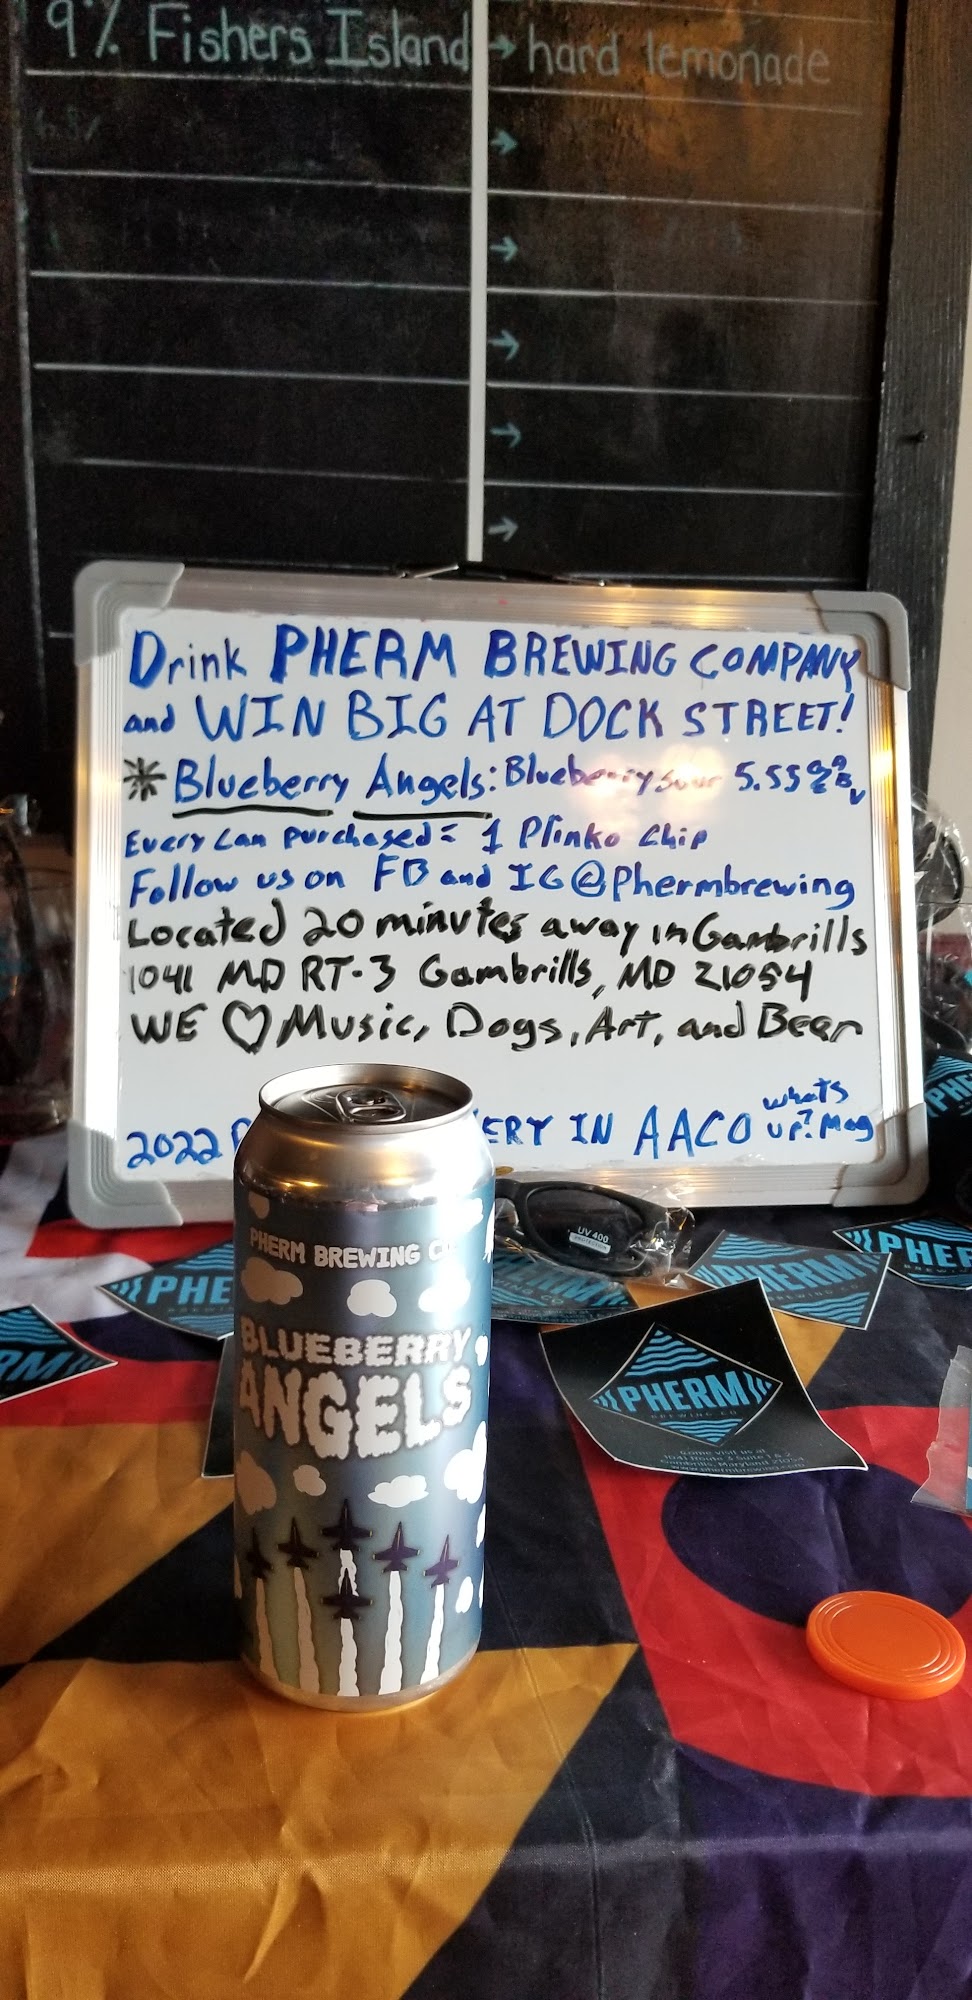 9% Fishers Island → hard lemonade
6.8%
→
→
→
→
→
Drink PHERM BREWING COMPANY
and WIN BIG AT DOCK STREET!
* Blueberry Angels: Blueberry Sour 5.55% ABV
Every Can Purchased = 1 Plinko Chip
Follow us on FB and IG @Phermbrewing
Located 20 minutes away in Gambrills
1041 MD RT-3 Gambrills, MD 21054
WE ♡ Music, Dogs, Art, and Beer
2022 ERY IN AACO whats up? Mag
PHERM BREWING C
BLUEBERRY
ANGELS
UV 400
PROTECTION
PHE
BREWING
RM
PHERM
BREWING CO
PHERM
BREWING CO
PHERM
PHERM
BREWING CO
Come visit us at
1041 Route 3 Suite 1 & 2
Gambrills, Maryland 21054
www.phermbrewing.com